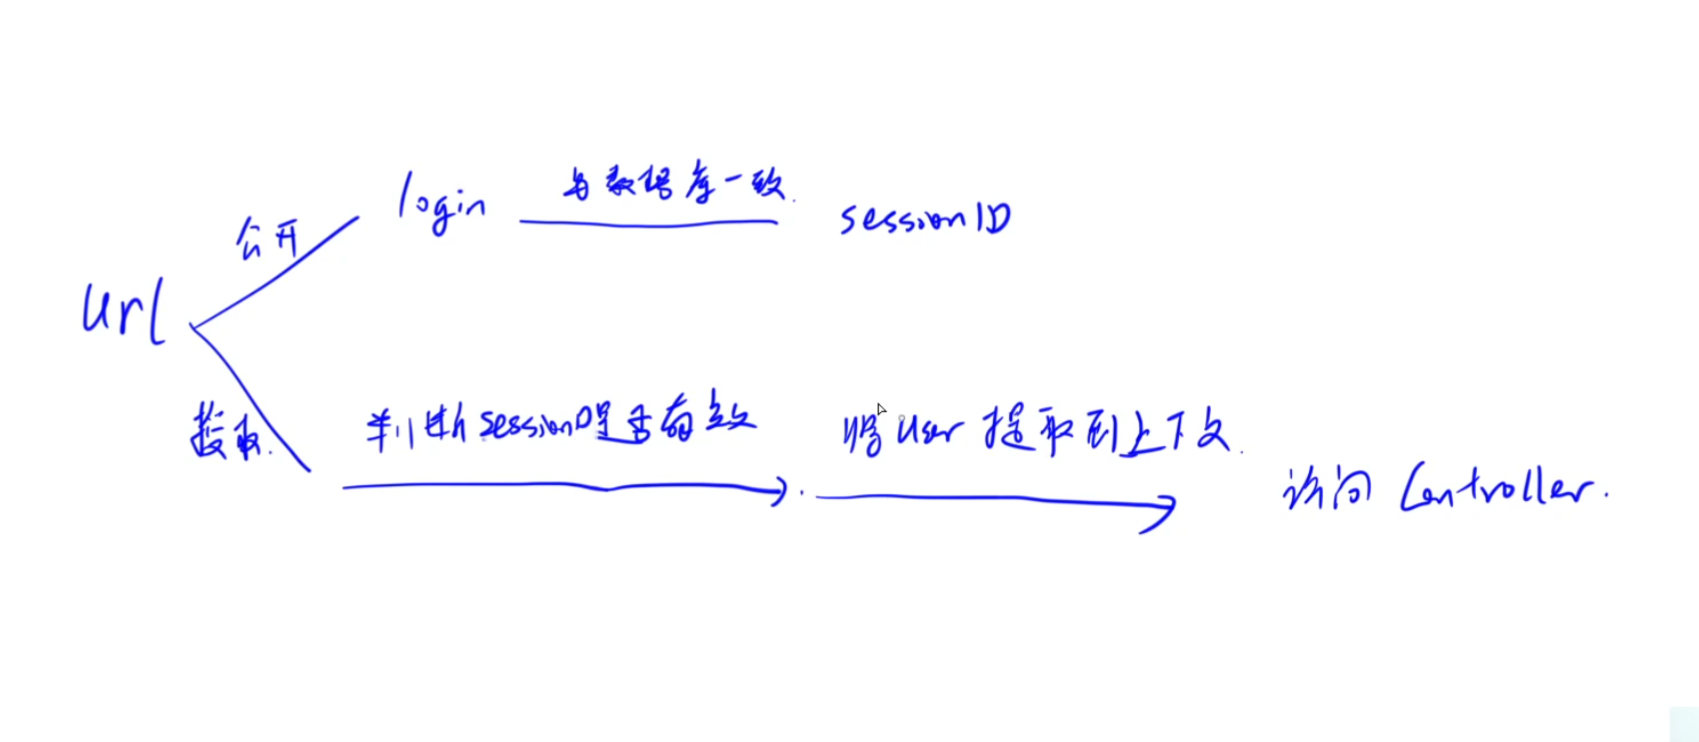 url
公开
login
与数据库一致.
sessionID
授权.
判断sessionID是否有效
将user提取到上下文.
访问Controller.